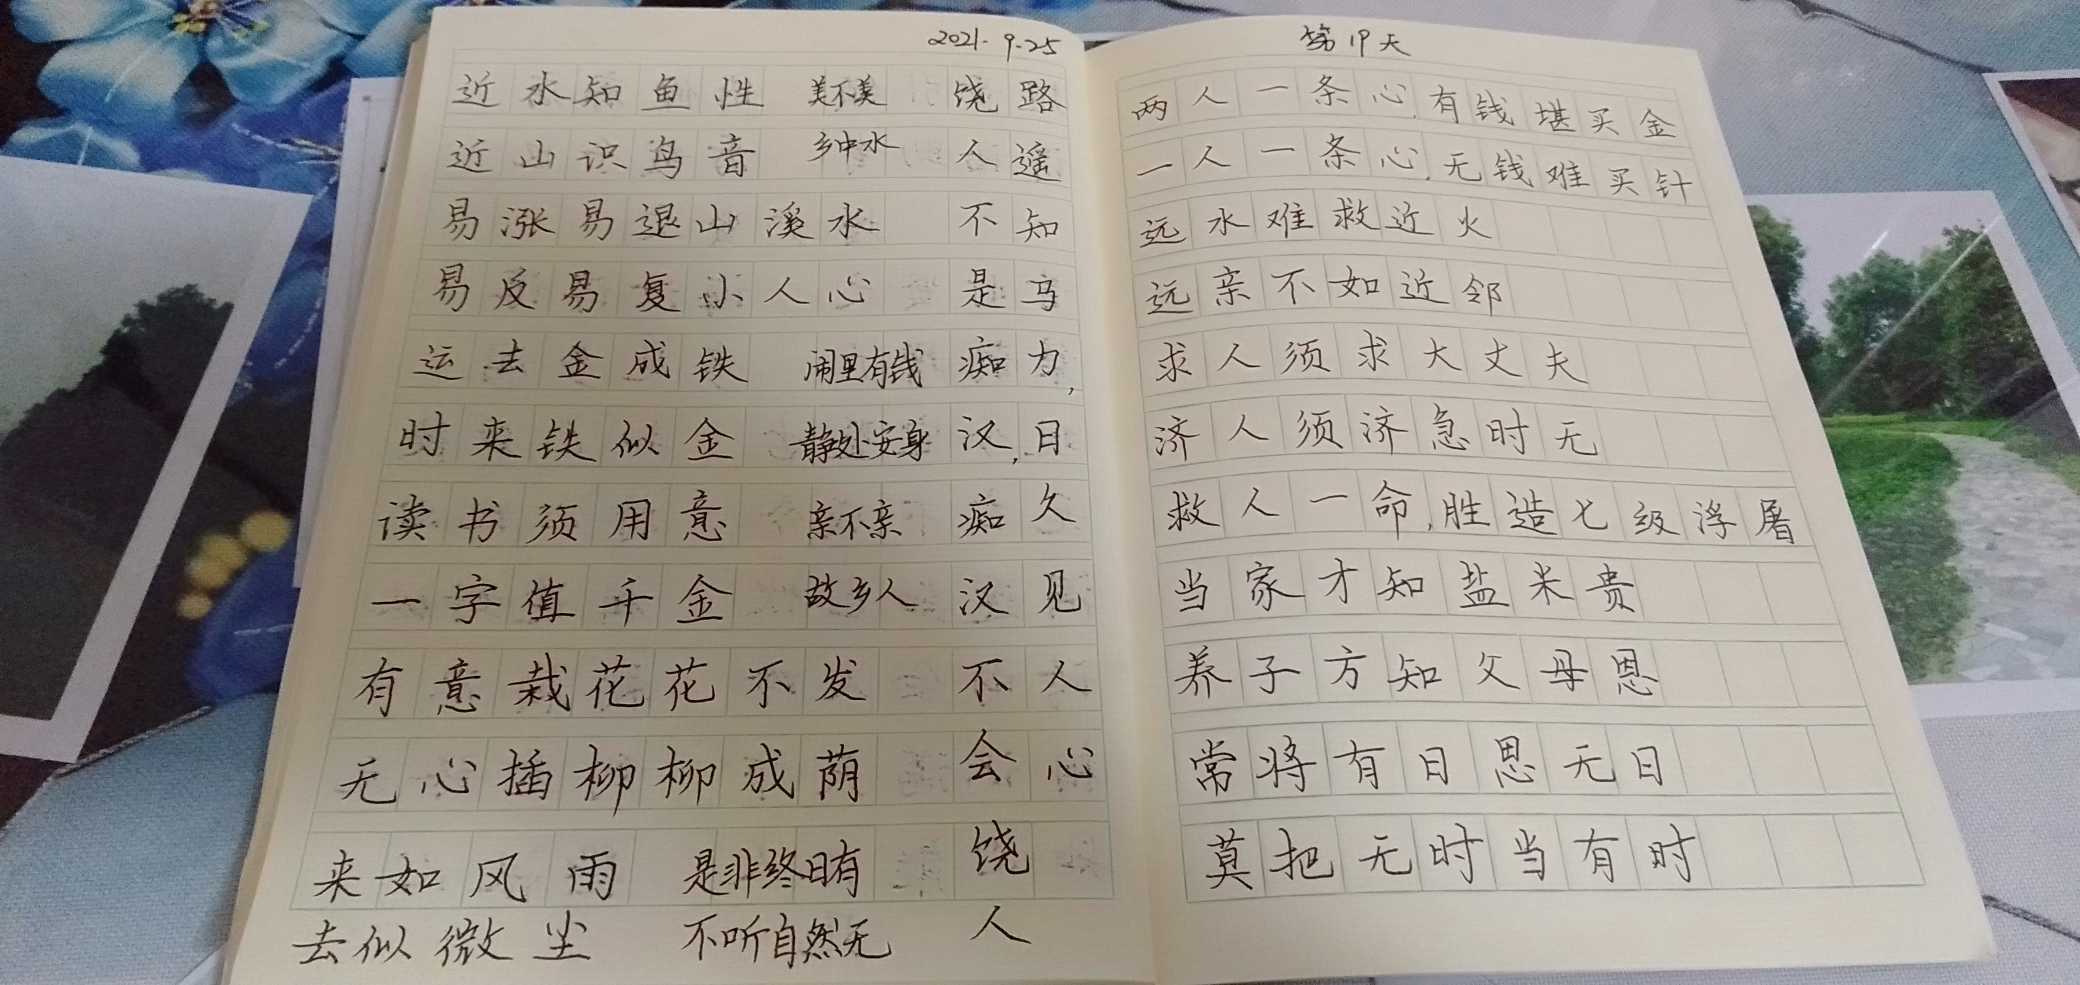 2021.9.25
近水知鱼性
近山识鸟音
易涨易退山溪水
易反易复小人心
运去金成铁
时来铁似金
读书须用意
一字值千金
有意栽花花不发
无心插柳柳成荫
来如风雨
去似微尘
美不美
乡中水
闹里有钱
静处安身
亲不亲
故乡人
是非终日有
不听自然无
路遥知马力,日久见人心
饶人不是痴汉,痴汉不会饶人
第19天
两人一条心,有钱堪买金
一人一条心,无钱难买针
远水难救近火
远亲不如近邻
求人须求大丈夫
济人须济急时无
救人一命,胜造七级浮屠
当家才知盐米贵
养子方知父母恩
常将有日思无日
莫把无时当有时